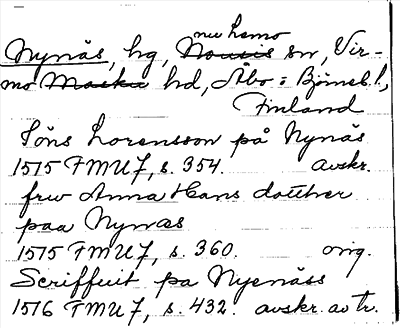 nu Lemo
Nynäs, hg, Nousis sn, Vir-
mo Masku hd, Åbo=Björneb.l.,
Finland
Jöns Lorensson på Nynäs
1515 FMU 7, s. 354. avskr.
frw Anna Hans dotther
paa Nynæs
1515 FMU 7, s. 360. orig.
Scriffuit pa Nyenäss
1516 FMU 7, s. 432. avskr. av tr.